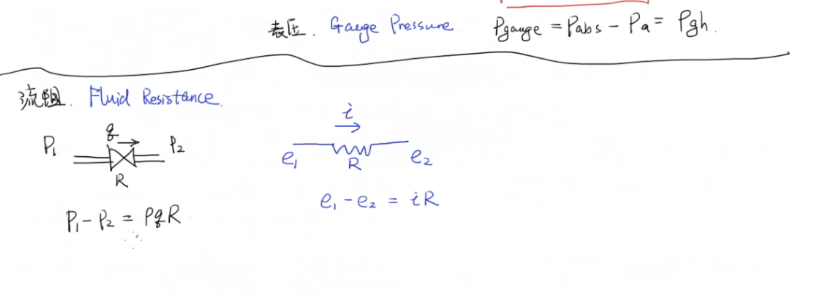 表压. Gauge Pressure. Pgauge = Pabs - Pa = ρgh.
流阻. Fluid Resistance.
q
P₁ P₂
R
P₁ - P₂ = ρqR
i
e₁ e₂
R
e₁ - e₂ = iR